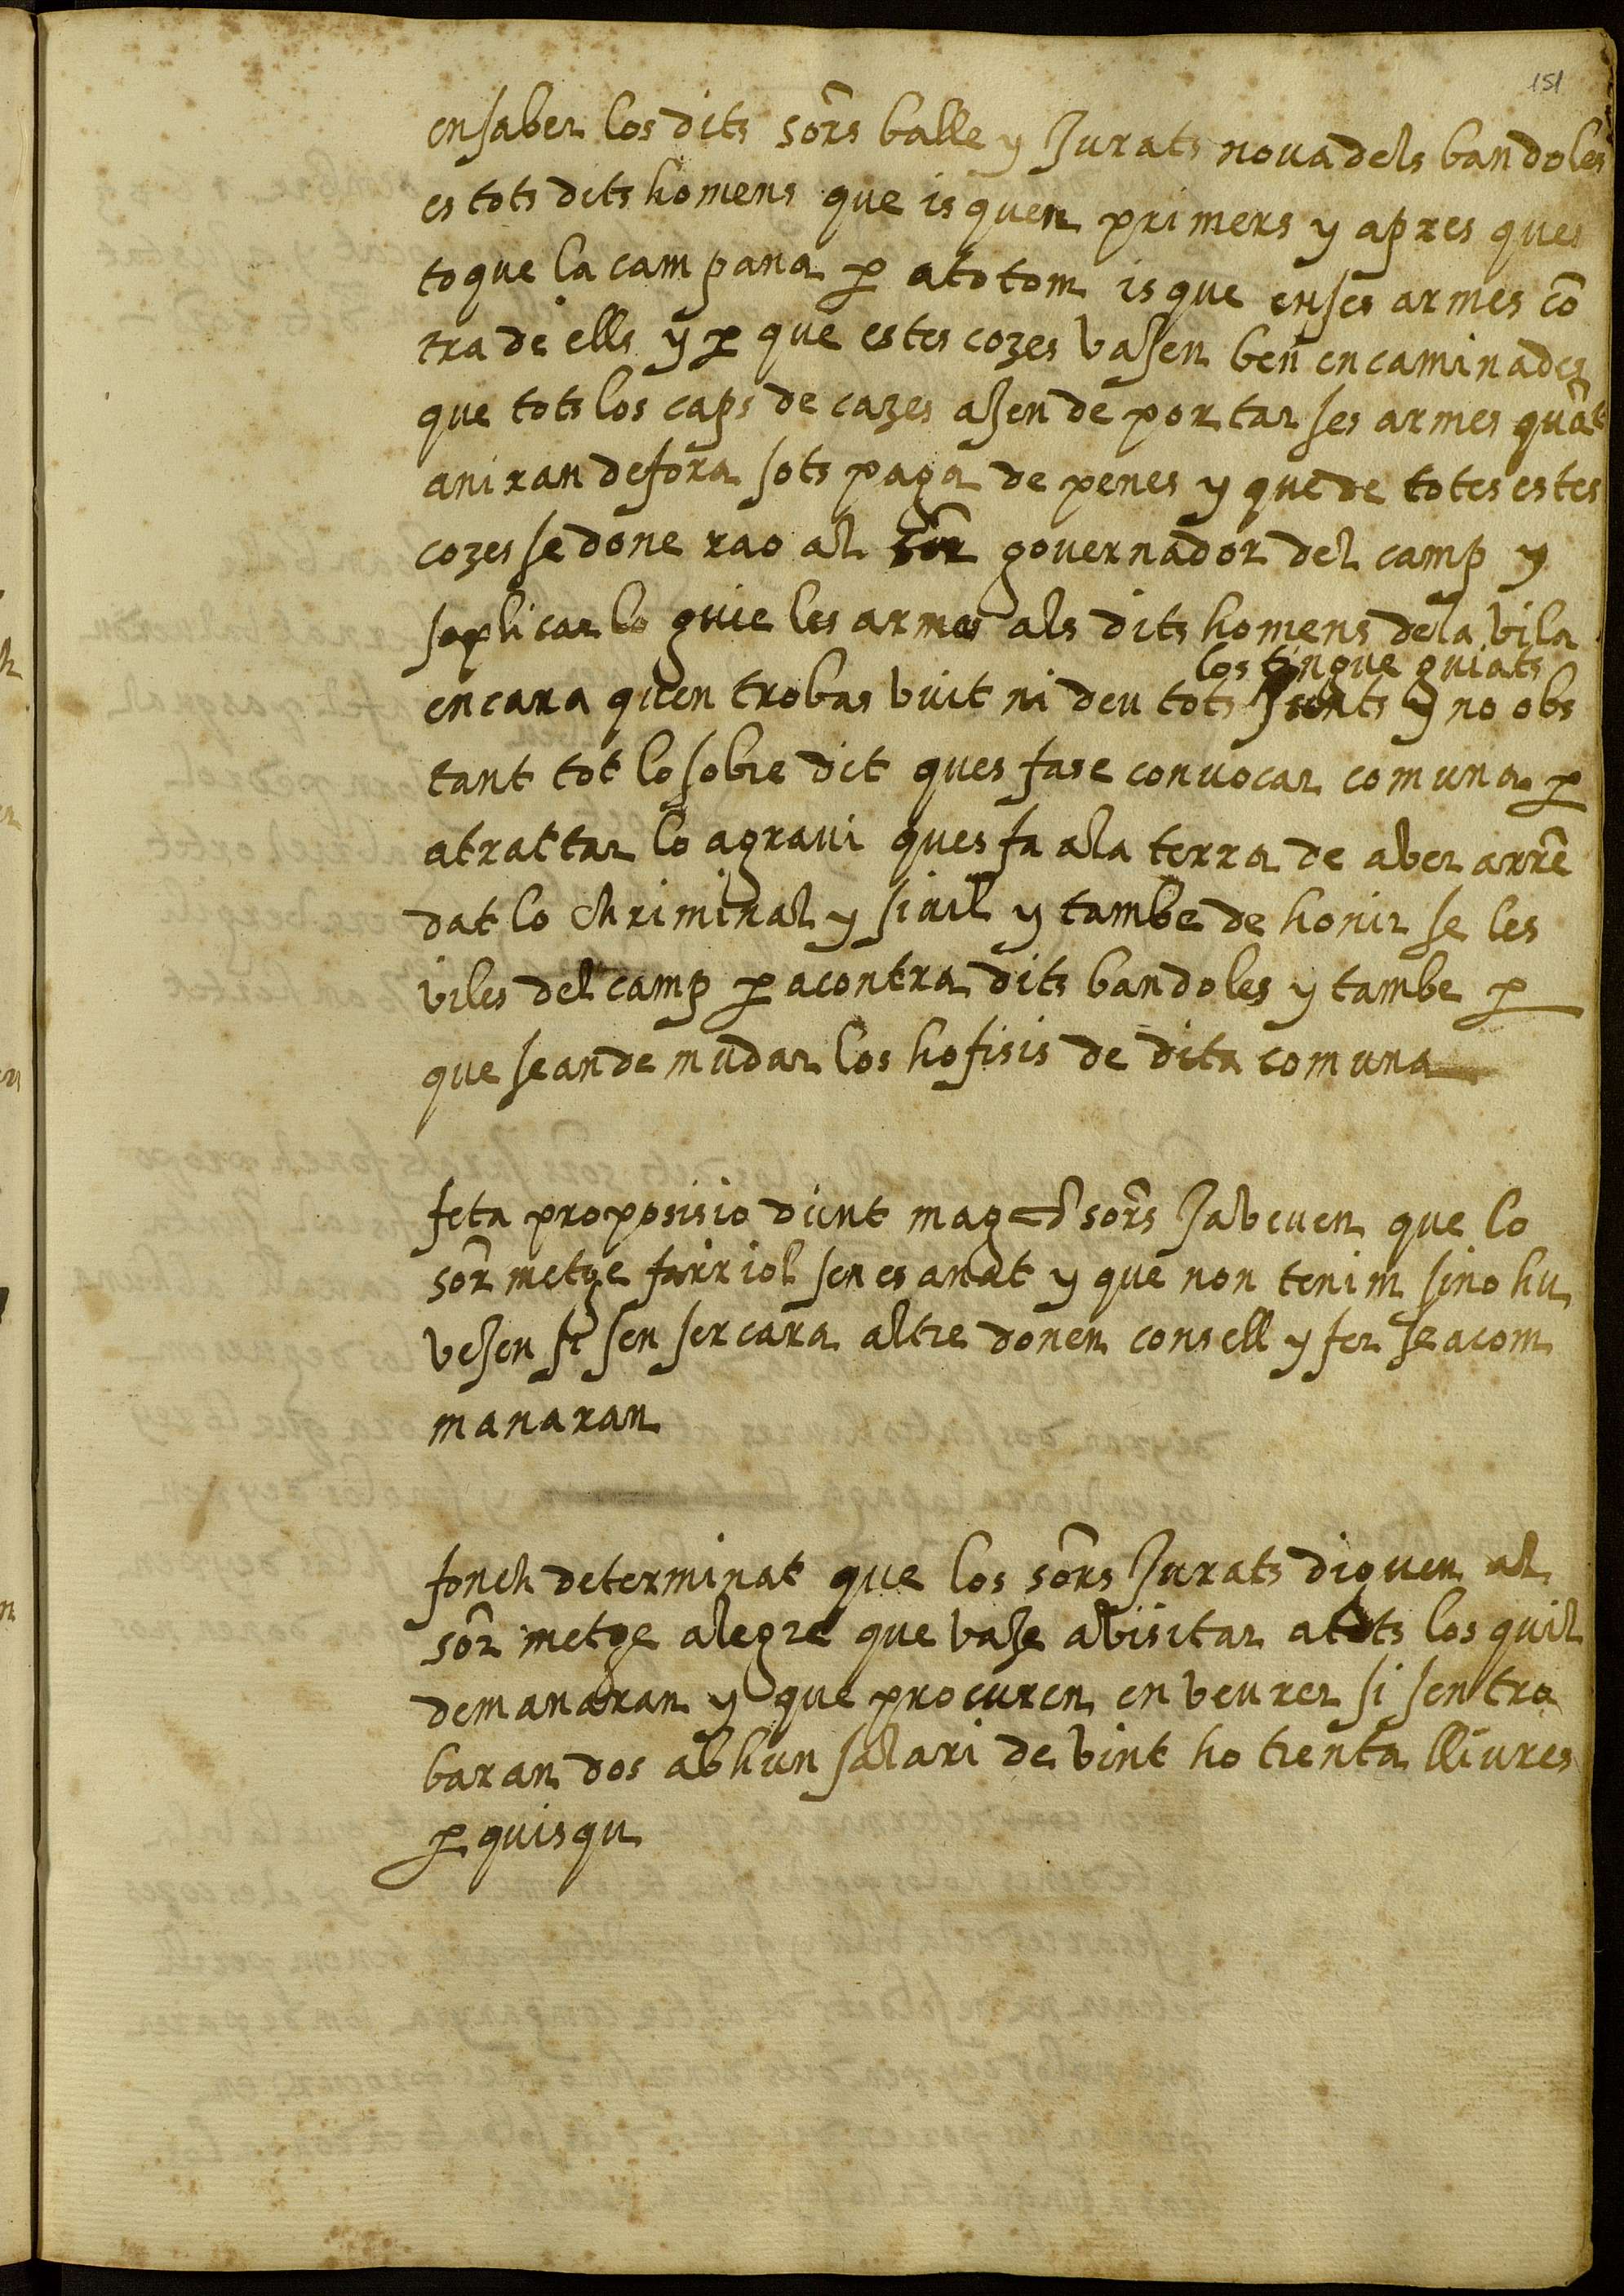 151
ensaber los dits sors balle y Jurats nova dels bandoles
es tots dits homens que isquen primers y apres ques
toque la campana p atotom isque enses armes cõ
tra de ells y p que estes cozes vasen ben encaminades
que tots los caps de cazes asen de portar ses armes quãt
aniran defora sots paga de penes y que de totes estes
cozes se done rao al sor governador del camp y
soplicar lo guie les armes als dits homens dela vila
los tingue guiats
encara quen trobas vuit ni deu tots Jsonts y no obs
tant tot lo sobre dit ques fase convocar comuna p
atrattar lo agravi ques fa ala terra de aber arrẽ
dat lo chriminal y sivil y tambe de honir se les
viles del camp p acontra dits bandoles y tambe p
que seande mudar los hofisis de dita comuna
feta proposisio dient mag sors Jabeuen que lo
sor metge farriol sen es anat y que non tenim sino hu
vesen si sen sercara altre donen consell y fer se a com
manaran
fonch determinat que los sors Jurats diguen al
sor metge alegre que vase avisitar atots los quil
demanaran y que procuren en veurer si sentro
baran dos ab hun salari de vint ho trenta lliures
p quisqu